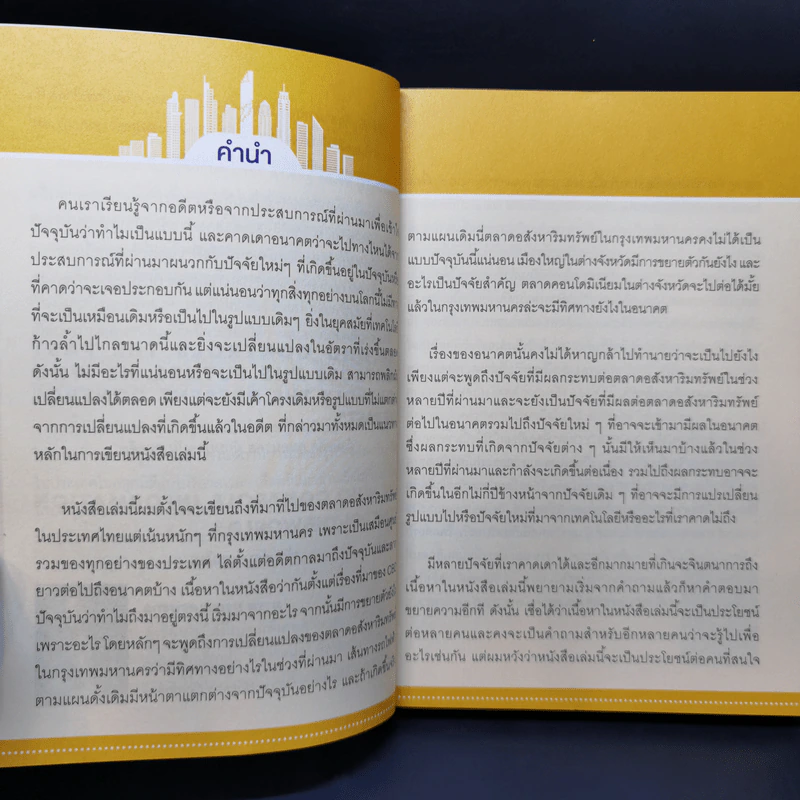 คำนำ
คนเราเรียนรู้จากอดีตหรือจากประสบการณ์ที่ผ่านมาเพื่อเข้าใจ
ปัจจุบันว่าทำไมเป็นแบบนี้ และคาดเดาอนาคตว่าจะไปทางไหนได้
ประสบการณ์ที่ผ่านมาผนวกกับปัจจัยใหม่ๆ ที่เกิดขึ้นอยู่ในปัจจุบัน
ที่คาดว่าจะเจอประกอบกัน แต่แน่นอนว่าทุกสิ่งทุกอย่างบนโลกนี้ไม่มี
ที่จะเป็นเหมือนเดิมหรือเป็นไปในรูปแบบเดิมๆ ยิ่งในยุคสมัยที่เทคโนโลยี
ก้าวล้ำไปไกลขนาดนี้และยิ่งจะเปลี่ยนแปลงในอัตราที่เร่งขึ้นตลอด
ดังนั้น ไม่มีอะไรที่แน่นอนหรือจะเป็นไปในรูปแบบเดิม สามารถพลิกผัน
เปลี่ยนแปลงได้ตลอด เพียงแต่จะยังมีเค้าโครงเดิมหรือรูปแบบที่ไม่แตกต่าง
จากการเปลี่ยนแปลงที่เกิดขึ้นแล้วในอดีต ที่กล่าวมาทั้งหมดเป็นแนวทาง
หลักในการเขียนหนังสือเล่มนี้
หนังสือเล่มนี้ผมตั้งใจจะเขียนถึงที่มาที่ไปของตลาดอสังหาริมทรัพย์
ในประเทศไทยแต่เน้นหนักๆ ที่กรุงเทพมหานคร เพราะเป็นเสมือนศูนย์
รวมของทุกอย่างของประเทศ ไล่ตั้งแต่อดีตกาลมาถึงปัจจุบันและลาก
ยาวต่อไปถึงอนาคตบ้าง เนื้อหาในหนังสือว่ากันตั้งแต่เรื่องที่มาของ CBD
ปัจจุบันว่าทำไมถึงมาอยู่ตรงนี้ เริ่มมาจากอะไร จากนั้นมีการขยายตัวยังไง
เพราะอะไร โดยหลักๆ จะพูดถึงการเปลี่ยนแปลงของตลาดอสังหาริมทรัพย์
ในกรุงเทพมหานครว่ามีทิศทางอย่างไรในช่วงที่ผ่านมา เส้นทางรถไฟฟ้า
ตามแผนดั้งเดิมมีหน้าตาแตกต่างจากปัจจุบันอย่างไร และถ้าเกิดขึ้นจริง
ตามแผนเดิมนี่ตลาดอสังหาริมทรัพย์ในกรุงเทพมหานครคงไม่ได้เป็น
แบบปัจจุบันนี้แน่นอน เมืองใหญ่ในต่างจังหวัดมีการขยายตัวกันยังไง และ
อะไรเป็นปัจจัยสำคัญ ตลาดคอนโดมิเนียมในต่างจังหวัดจะไปต่อได้มั้ย
แล้วในกรุงเทพมหานครล่ะจะมีทิศทางยังไงในอนาคต
เรื่องของอนาคตนั้นคงไม่ได้หาญกล้าไปทำนายว่าจะเป็นไปยังไง
เพียงแต่จะพูดถึงปัจจัยที่มีผลกระทบต่อตลาดอสังหาริมทรัพย์ในช่วง
หลายปีที่ผ่านมาและจะยังเป็นปัจจัยที่มีผลต่อตลาดอสังหาริมทรัพย์
ต่อไปในอนาคตรวมไปถึงปัจจัยใหม่ ๆ ที่อาจจะเข้ามามีผลในอนาคต
ซึ่งผลกระทบที่เกิดจากปัจจัยต่าง ๆ นั้นมีให้เห็นมาบ้างแล้วในช่วง
หลายปีที่ผ่านมาและกำลังจะเกิดขึ้นต่อเนื่อง รวมไปถึงผลกระทบอาจจะ
เกิดขึ้นในอีกไม่กี่ปีข้างหน้าจากปัจจัยเดิม ๆ ที่อาจจะมีการแปรเปลี่ยน
รูปแบบไปหรือปัจจัยใหม่ที่มาจากเทคโนโลยีหรืออะไรที่เราคาดไม่ถึง
มีหลายปัจจัยที่เราคาดเดาได้และอีกมากมายที่เกินจะจินตนาการถึง
เนื้อหาในหนังสือเล่มนี้พยายามเริ่มจากคำถามแล้วก็หาคำตอบมา
ขยายความอีกที ดังนั้น เชื่อได้ว่าเนื้อหาในหนังสือเล่มนี้จะเป็นประโยชน์
ต่อหลายคนและคงจะเป็นคำถามสำหรับอีกหลายคนว่าจะรู้ไปเพื่อ
อะไรเช่นกัน แต่ผมหวังว่าหนังสือเล่มนี้จะเป็นประโยชน์ต่อคนที่สนใจ